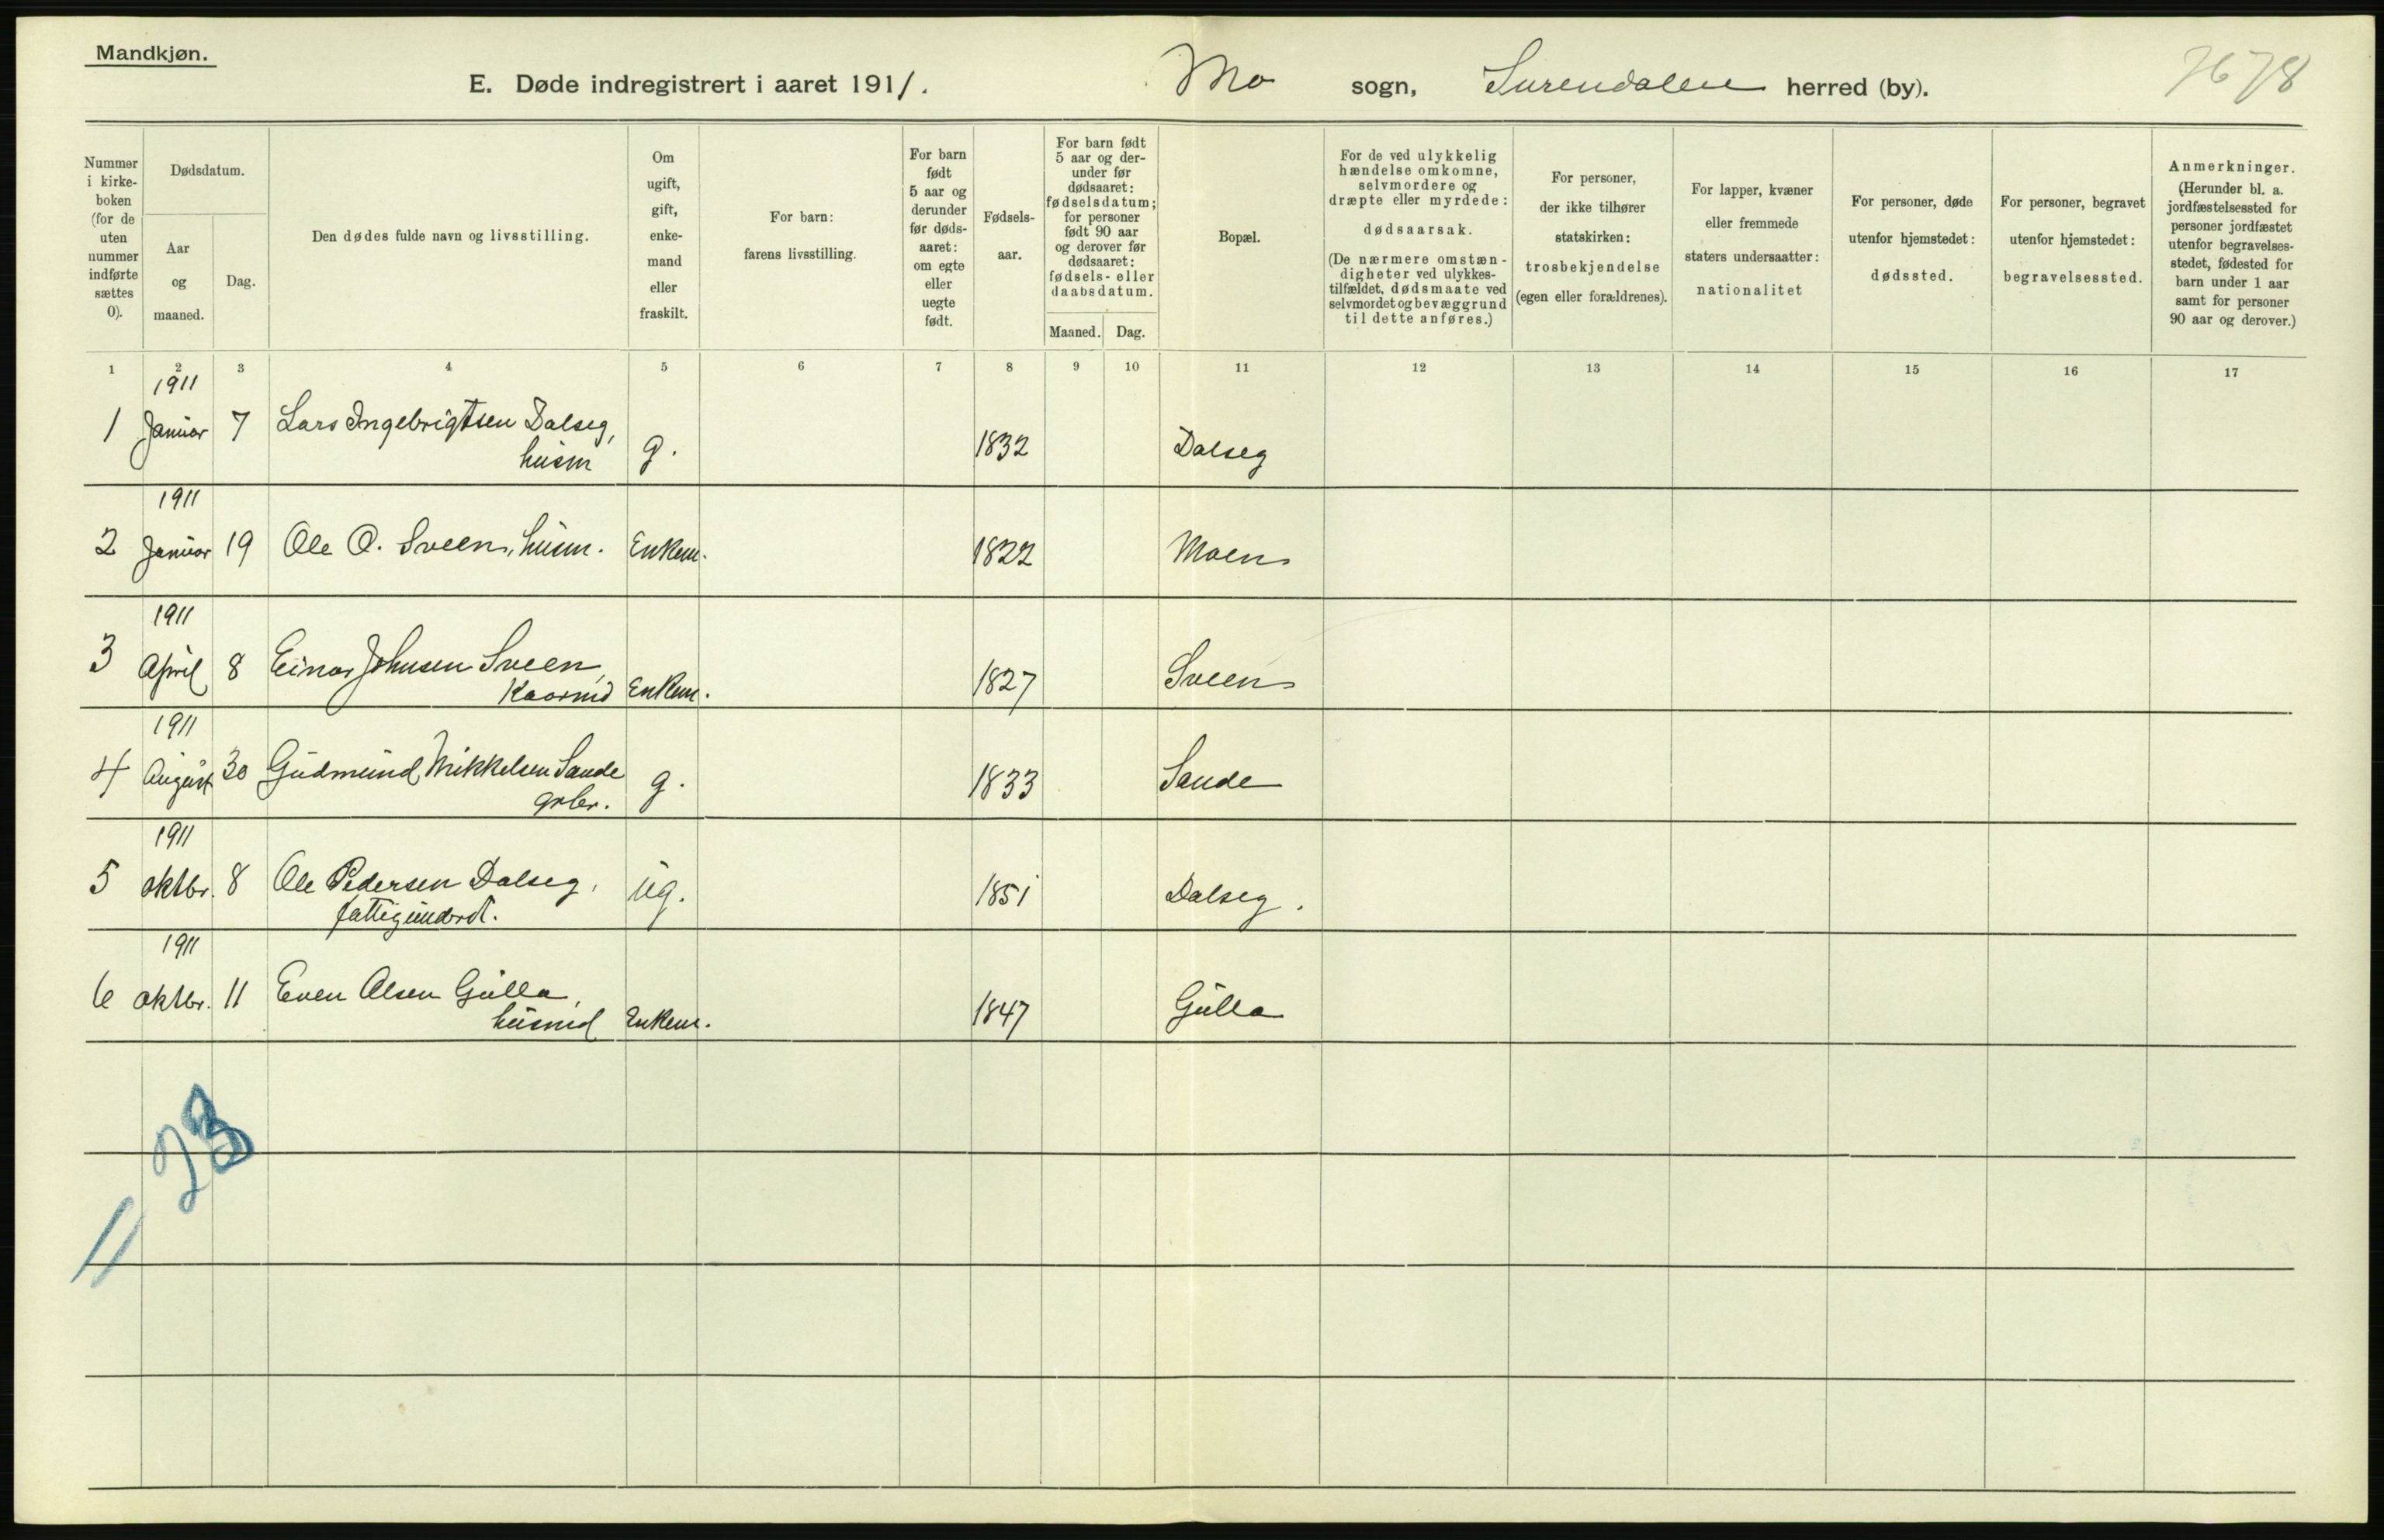 Mandkjøn.
E. Døde indregistrert i aaret 1911. Mo sogn, Surendalen herred (by).
7678
Nummer i kirke-boken (for de uten nummer indførte sættes 0).
Dødsdatum.
Aar og maaned.
Dag.
Den dødes fulde navn og livsstilling.
Om ugift, gift, enke-mand eller fraskilt.
For barn: farens livsstilling.
For barn født 5 aar og derunder før døds-aaret: om egte eller uegte født.
Fødsels-aar.
For barn født 5 aar og der-under før dødsaaret: fødselsdatum; for personer født 90 aar og derover før dødsaaret: fødsels- eller daabsdatum.
Maaned.
Dag.
Bopæl.
For de ved ulykkelig hændelse omkomne, selvmordere og dræpte eller myrdede: dødsaarsak. (De nærmere omstæn-digheter ved ulykkes-tilfældet, dødsmaate ved selvmordet og bevæggrund til dette anføres.)
For personer, der ikke tilhører statskirken: trosbekjendelse (egen eller forældrenes).
For lapper, kvæner eller fremmede staters undersaatter: nationalitet
For personer, døde utenfor hjemstedet: dødssted.
For personer, begravet utenfor hjemstedet: begravelsessted.
Anmerkninger. (Herunder bl. a. jordfæstelsessted for personer jordfæstet utenfor begravelses-stedet, fødested for barn under 1 aar samt for personer 90 aar og derover.)
1 2 3 4 5 6 7 8 9 10 11 12 13 14 15 16 17
1911
1 Januar 7 Lars Ingebrigtsen Dalseg,
husm g. 1832 Dalseg
1911
2 Januar 19 Ole O. Sveen, husm. Enkem. 1822 Moen
1911
3 April 8 Einar Johnsen Sveen,
Kaarmd Enkem. 1827 Sveen
1911
4 August 30 Gudmund Mikkelsen Sande
grbr. g. 1833 Sande
1911
5 oktbr. 8 Ole Pedersen Dalseg,
fattigunderst. ug. 1851 Dalseg.
1911
6 oktbr. 11 Even Olsen Gulla,
husmd Enkem. 1847 Gulla
11